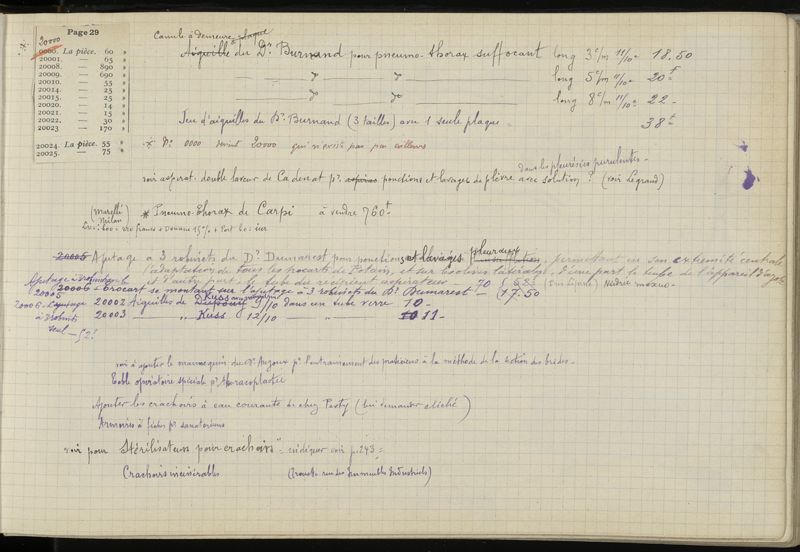 Page 29
20000
0000. La pièce. 60 »
20001. — 65 »
20008. — 890 »
20009. — 690 »
20010. — 55 »
20014. — 25 »
20015. — 25 »
20020. — 14 »
20021. — 15 »
20022. — 30 »
20023 — 170 »
20024. La pièce. 55 »
20025. — 75 »
Canule à demeure à plaque
Aiguille du Dr Burnand pour pneumo-thorax suffocant long 3 c/m 11/10e 18.50
long 5 c/m 11/10e 20f
long 8 c/m 11/10e 22 -
Jeu d'aiguilles du Dr Burnand (3 tailles) avec 1 seule plaque 38f
x N° 0000 20000 qui n'existe pas par ailleurs
dans les pleurésies purulentes -
voir aspirat. double laveur de Cadenat pr ponctions et lavages de plèvre avec solution ? (voir Legrand)
(Morelli Milan)
* Pneumo-Thorax de Carpi à vendre 760f
20005 Ajutage à 3 robinets du Dr Dumarest pour ponctions et lavages pleuraux, permettant en son extrémité centrale
l'adaptation de tous les trocarts de Potain, et sur branches latérales, d'une part le tube de l'appareil d'
et d'autre part le tube du récipient aspirateur - 70
20006 - Trocart se montant sur l'ajutage à 3 robinets du Dr Dumarest — 17.50
20005
20006 - Ajutage
à robinets
seul - 52f
20002 Aiguilles de Kuss 9/10 dans un tube verre 10 -
20003 — " Kuss 12/10 — " 11 -
voir à ajouter le mannequin du Dr Auzoux pr l'entraînement des praticiens à la méthode de la section des brides -
Table opératoire spéciale pr thoracoplastie
Ajouter les crachoirs à eau courante de chez Pasty (lui demander cliché)
Armoires à fiches pr sanatoriums
voir pour "Stérilisateurs pour crachoirs" - voir p. 243 =
Crachoirs incinérables (rue des Immeubles Industriels)